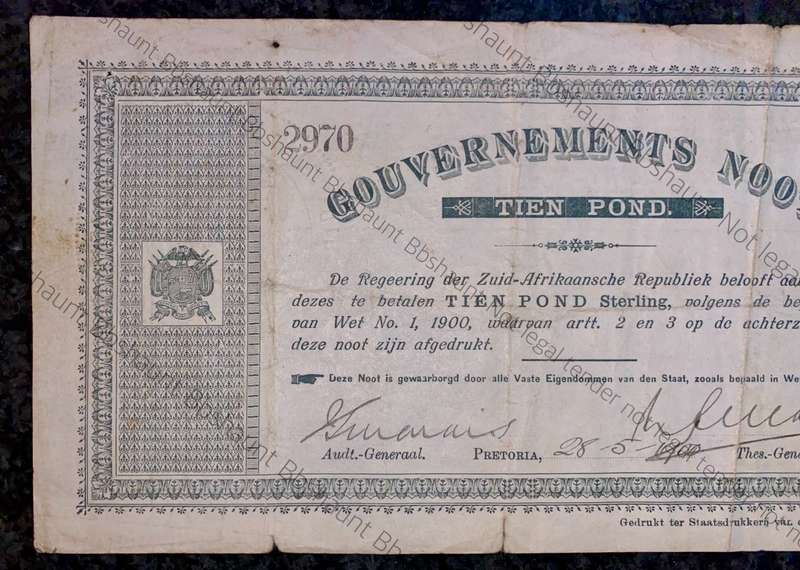 2970
GOUVERNEMENTS NOO
TIEN POND.
De Regeering der Zuid-Afrikaansche Republiek belooft aa
dezes te betalen TIEN POND Sterling, volgens de be
van Wet No. 1, 1900, waarvan artt. 2 en 3 op de achterz
deze noot zijn afgedrukt.
Deze Noot is gewaarborgd door alle Vaste Eigendommen van den Staat, zooals bepaald in We
Audt.-Generaal. PRETORIA, 28-5-1900 Thes.-Gen
Gedrukt ter Staatsdrukkerij van
Bbshaunt Not legal tender